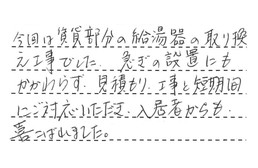 今回は賃貸部分の給湯器の取り換
え工事でした。急ぎの設置にも
かかわらず、見積もり、工事と短期間
にご対応いただき、入居者からも
喜こばれました。